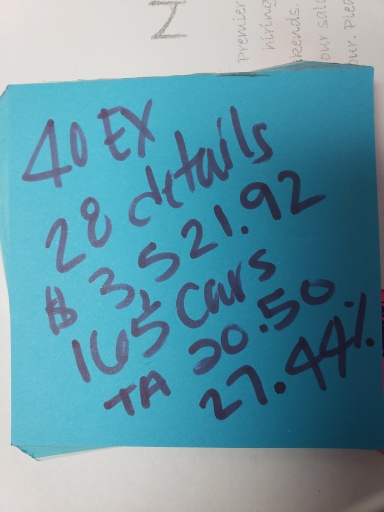 N
Premier
hiring
kends.
our salo
our. Plea
40 EX
28 details
$ 3,521.92
165 cars
TA 20.50
27.44%